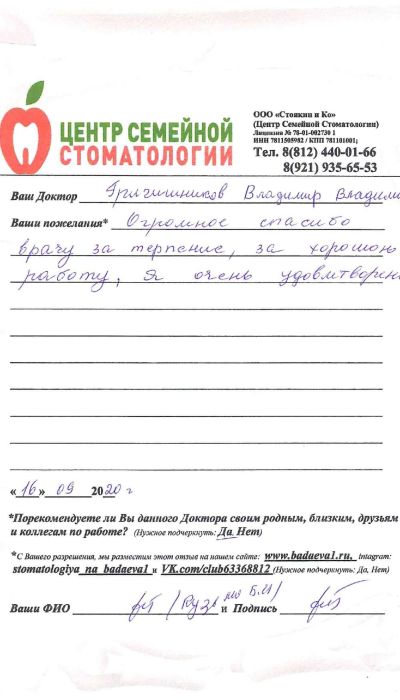 ЦЕНТР СЕМЕЙНОЙ
СТОМАТОЛОГИИ
ООО «Стоякин и Ко»
(Центр Семейной Стоматологии)
Лицензия № 78-01-002730 1
ИНН 7811505982 / КПП 781101001;
Тел. 8(812) 440-01-66
8(921) 935-65-53
Ваш Доктор Григишников Владимир Владими
Ваши пожелания* Огромное спасибо
врачу за терпение, за хорошою
работу, Я очень удовлтворен
«16» 09 2020 г
*Порекомендуете ли Вы данного Доктора своим родным, близким, друзьям
и коллегам по работе? (Нужное подчеркнуть: Да, Нет)
*С Вашего разрешения, мы разместим этот отзыв на нашем сайте: www.badaeva1.ru, intagram:
stomatologiya_na_badaeva1 и VK.com/club63368812 (Нужное подчеркнуть: Да, Нет)
Ваши ФИО и Подпись